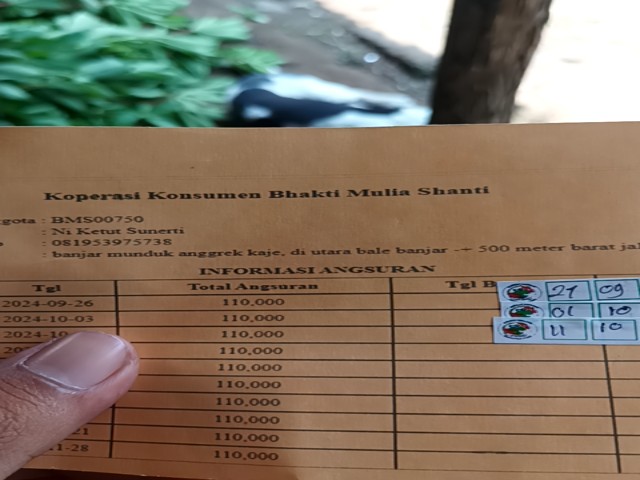 Koperasi Konsumen Bhakti Mulia Shanti
gota : BMS00750
: Ni Ketut Sunerti
: 081953975738
: banjar munduk anggrek kaje, di utara bale banjar -+ 500 meter barat jal
INFORMASI ANGSURAN
Tgl Total Angsuran Tgl B
2024-09-26 110,000 27 09
2024-10-03 110,000 01 10
2024-10 110,000 11 10
110,000
110,000
110,000
110,000
110,000
21 110,000
1-28 110,000